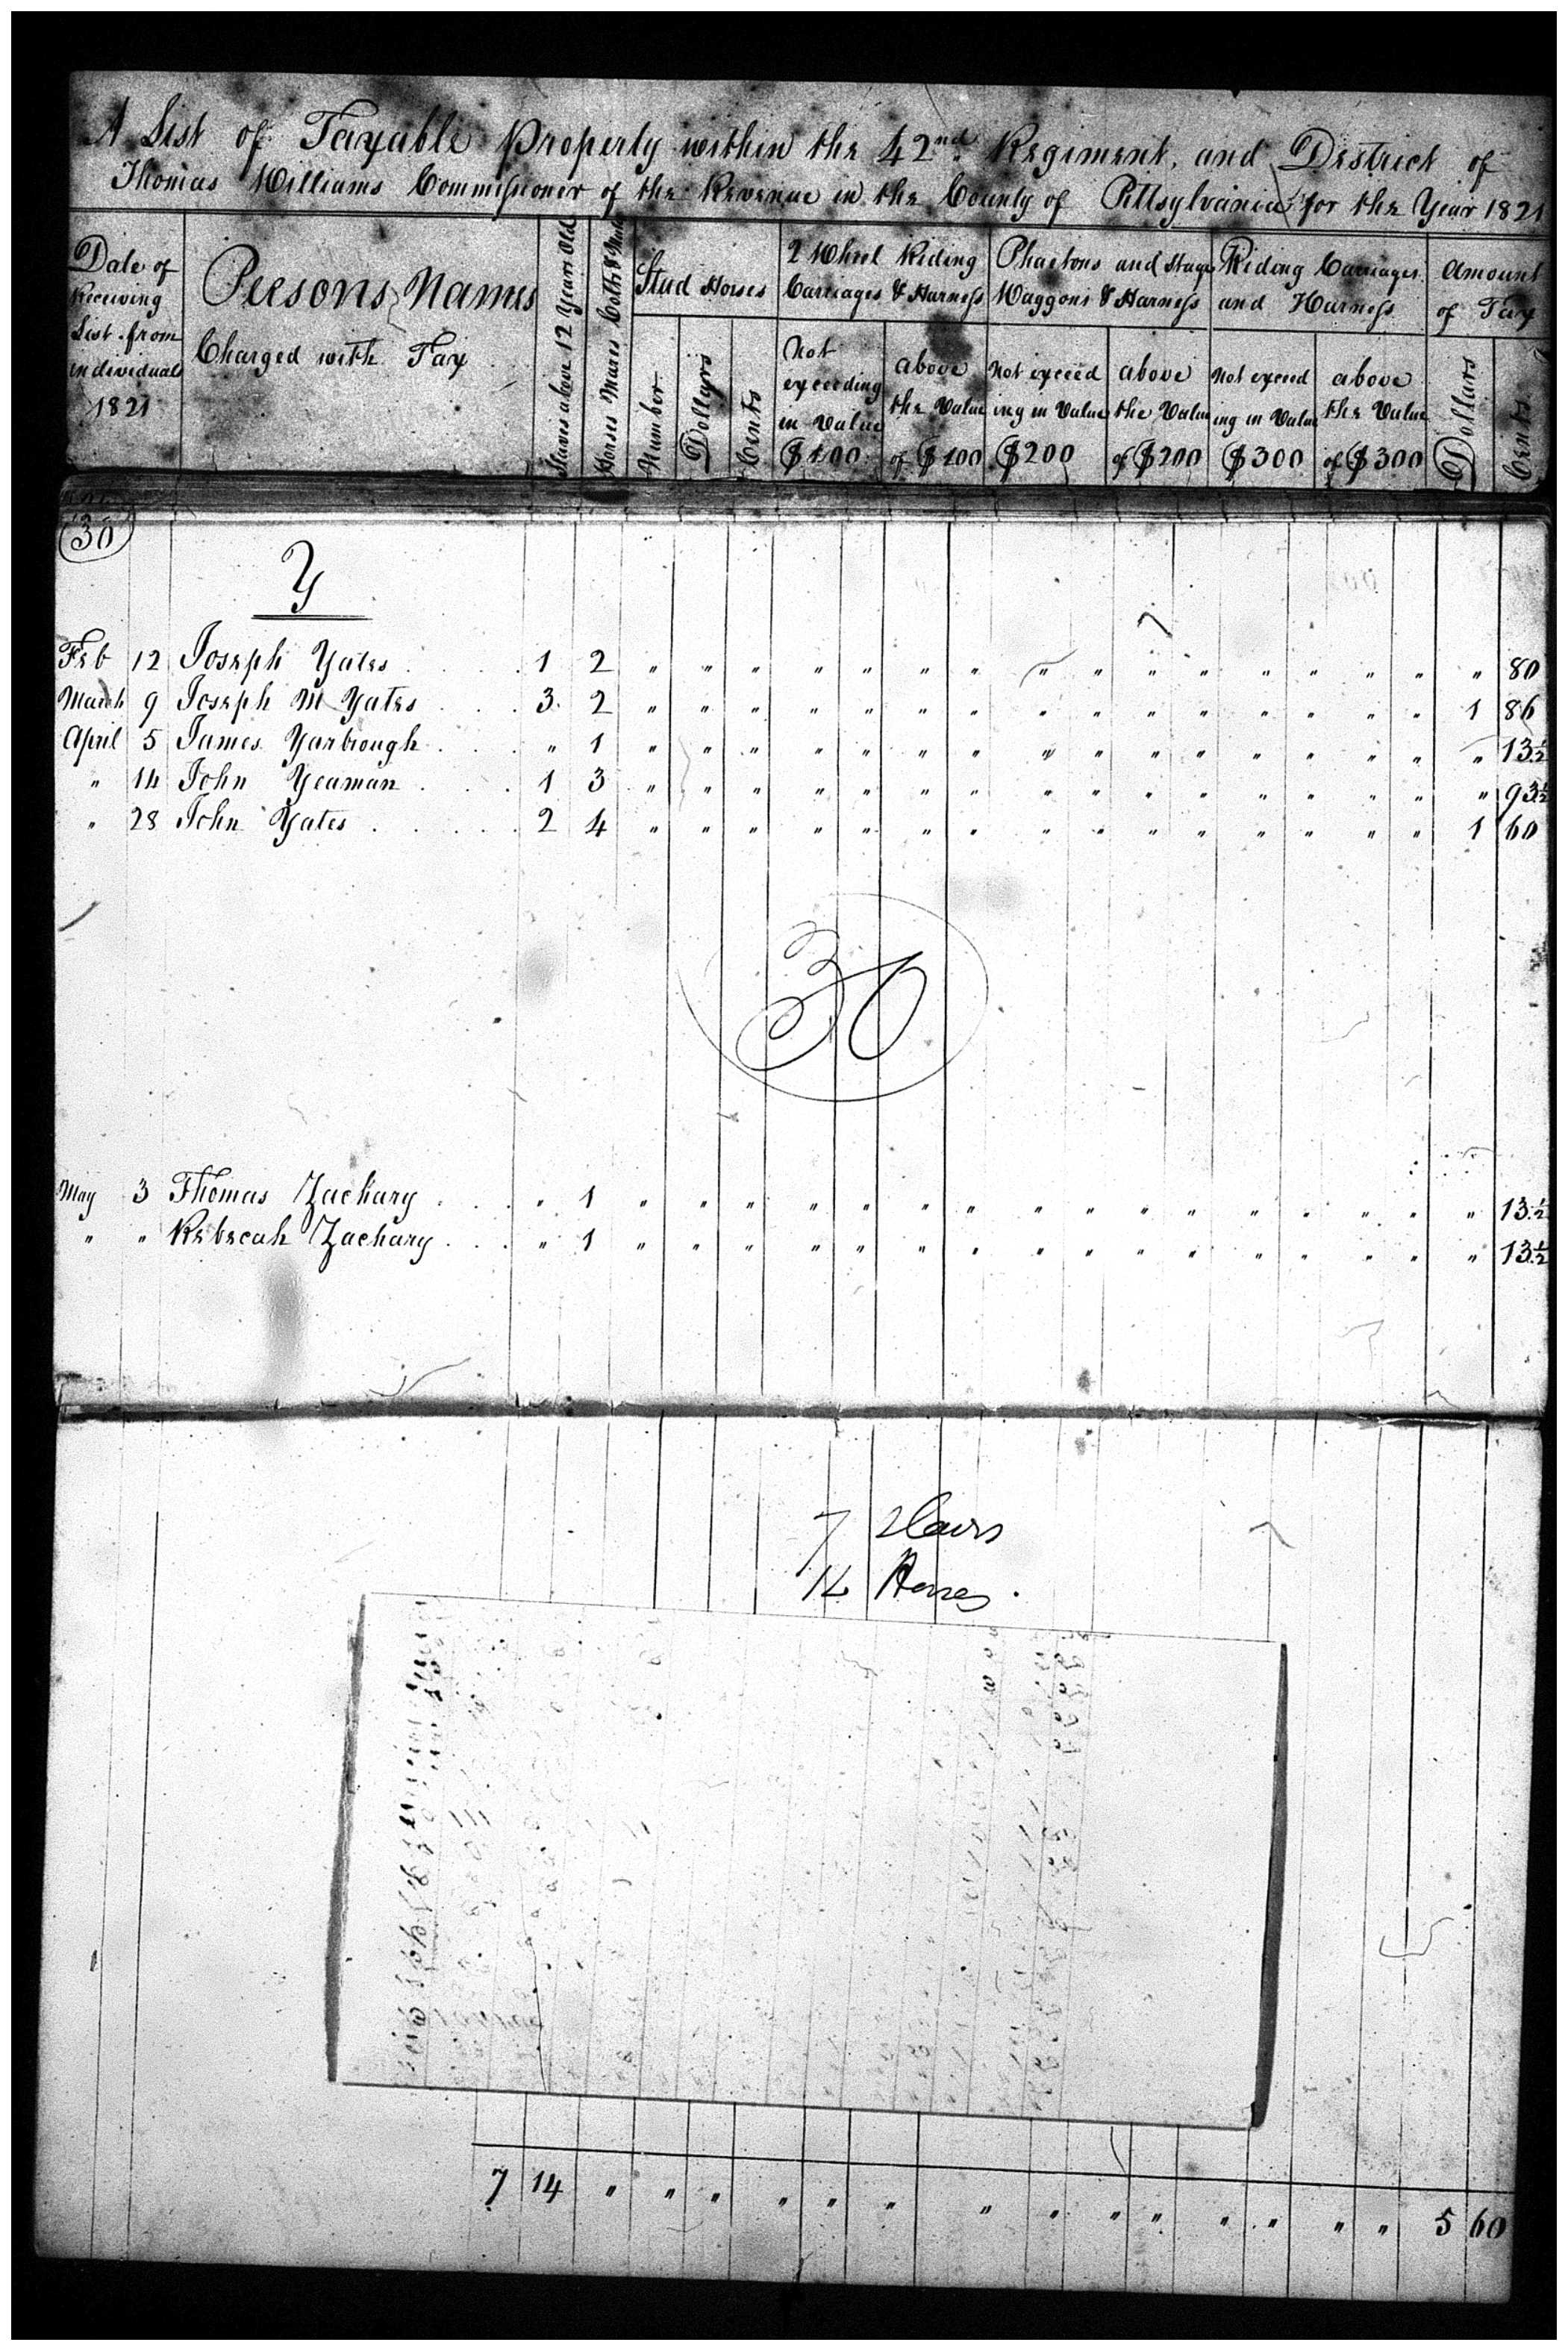 A List of Taxable Property within the 42nd Regiment, and District of
Thomas Williams Commissioner of the Revenue in the County of Pittsylvania for the Year 1821
Date of Receiving List from individuals 1821
Persons Names Charged with Tax
Slaves above 12 Years Old
Horses Mares Colts & Mules
Stud Horses
Number
Dollars
Cents
2 Wheel Riding Carriages & Harness
Not exceeding in Value $100
above the Value of $100
Phaetons and Stage Waggons & Harness
Not exceeding in Value $200
above the Value of $200
Riding Carriages and Harness
Not exceeding in Value $300
above the Value of $300
Amount of Tax
Dollars
Cents
30
Y
Feb 12 Joseph Yates 1 2 " " " " " " " " " " " " " " " " 80
March 9 Joseph M Yates 3 2 " " " " " " " " " " " " " " " 1 86
April 5 James Yarbrough " 1 " " " " " " " " " " " " " " " " 13½
" 14 John Yeaman 1 3 " " " " " " " " " " " " " " " " 93½
" 28 John Yates 2 4 " " " " " " " " " " " " " " " 1 60
30
May 3 Thomas Zachary " 1 " " " " " " " " " " " " " " " " 13½
" " Rebecah Zachary " 1 " " " " " " " " " " " " " " " " 13½
7 Slaves
14 Horses
7 14 " " " " " " " " " " " " " " 5 60